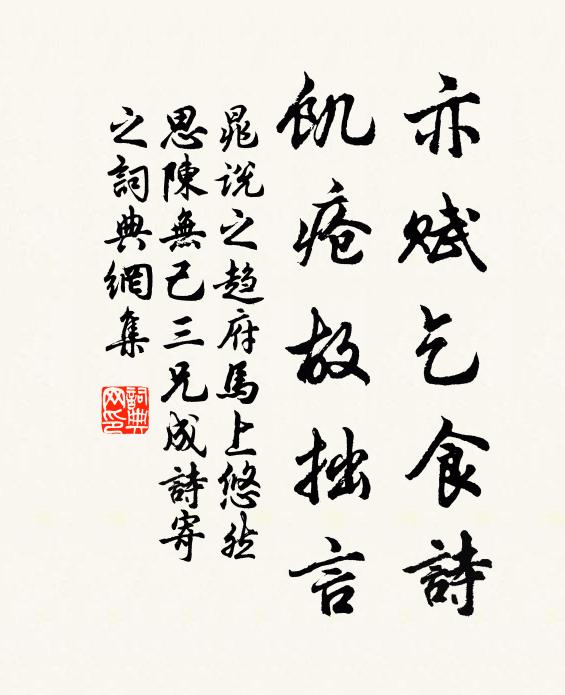 亦赋乞食詩
飢瘡故拙言
晁说之趋府馬上悠然
思陳無己三兄成詩寄
之詞典網集
詞典
网印